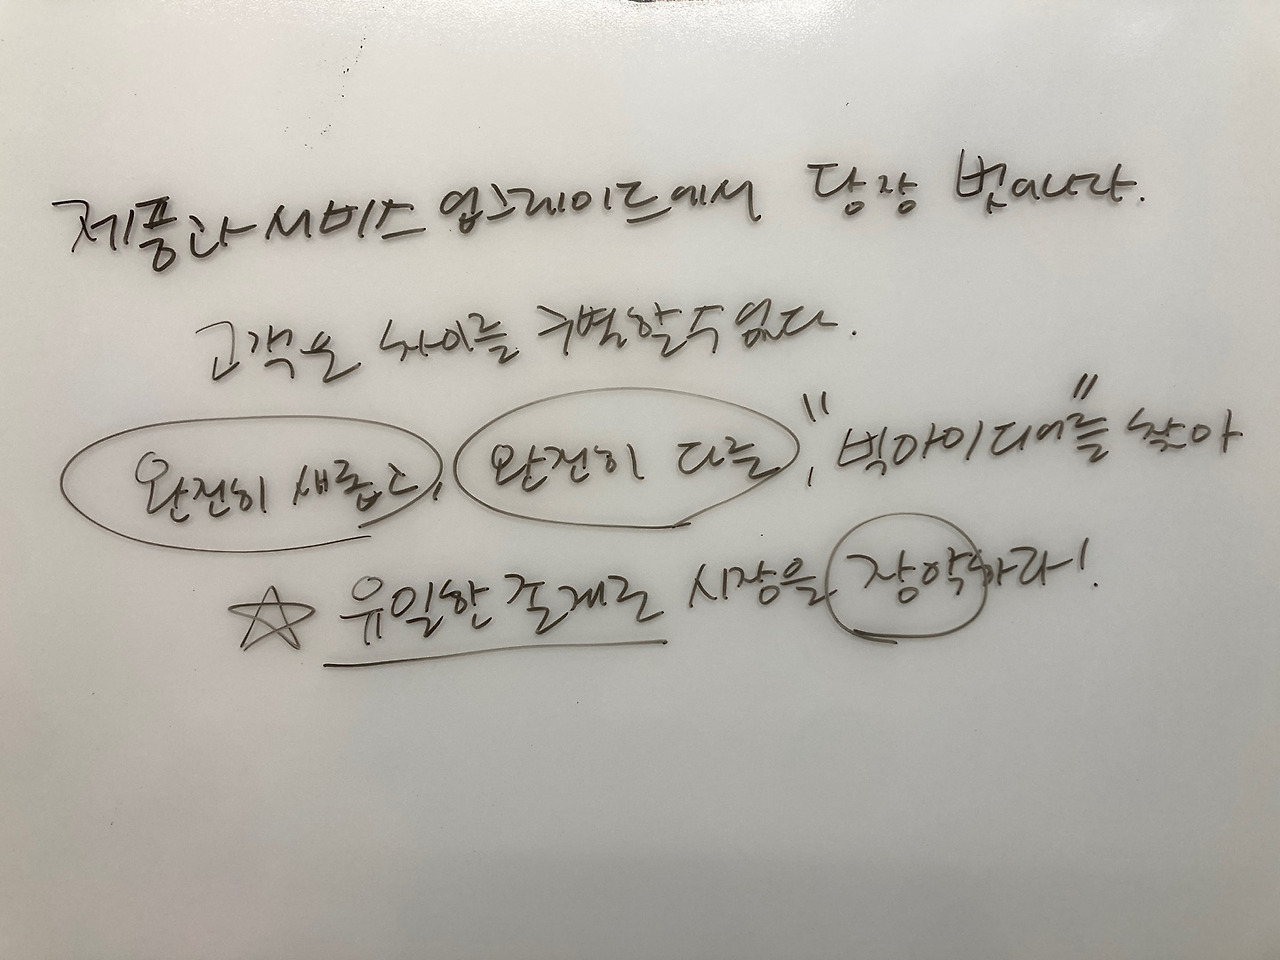 제품과 서비스 업그레이드에서 당장 벗어나라.
고객은 차이를 구별할 수 없다.
완전히 새롭고, 완전히 다른, "빅아이디어"를 찾아
☆ 유일한 존재로 시장을 장악하라!